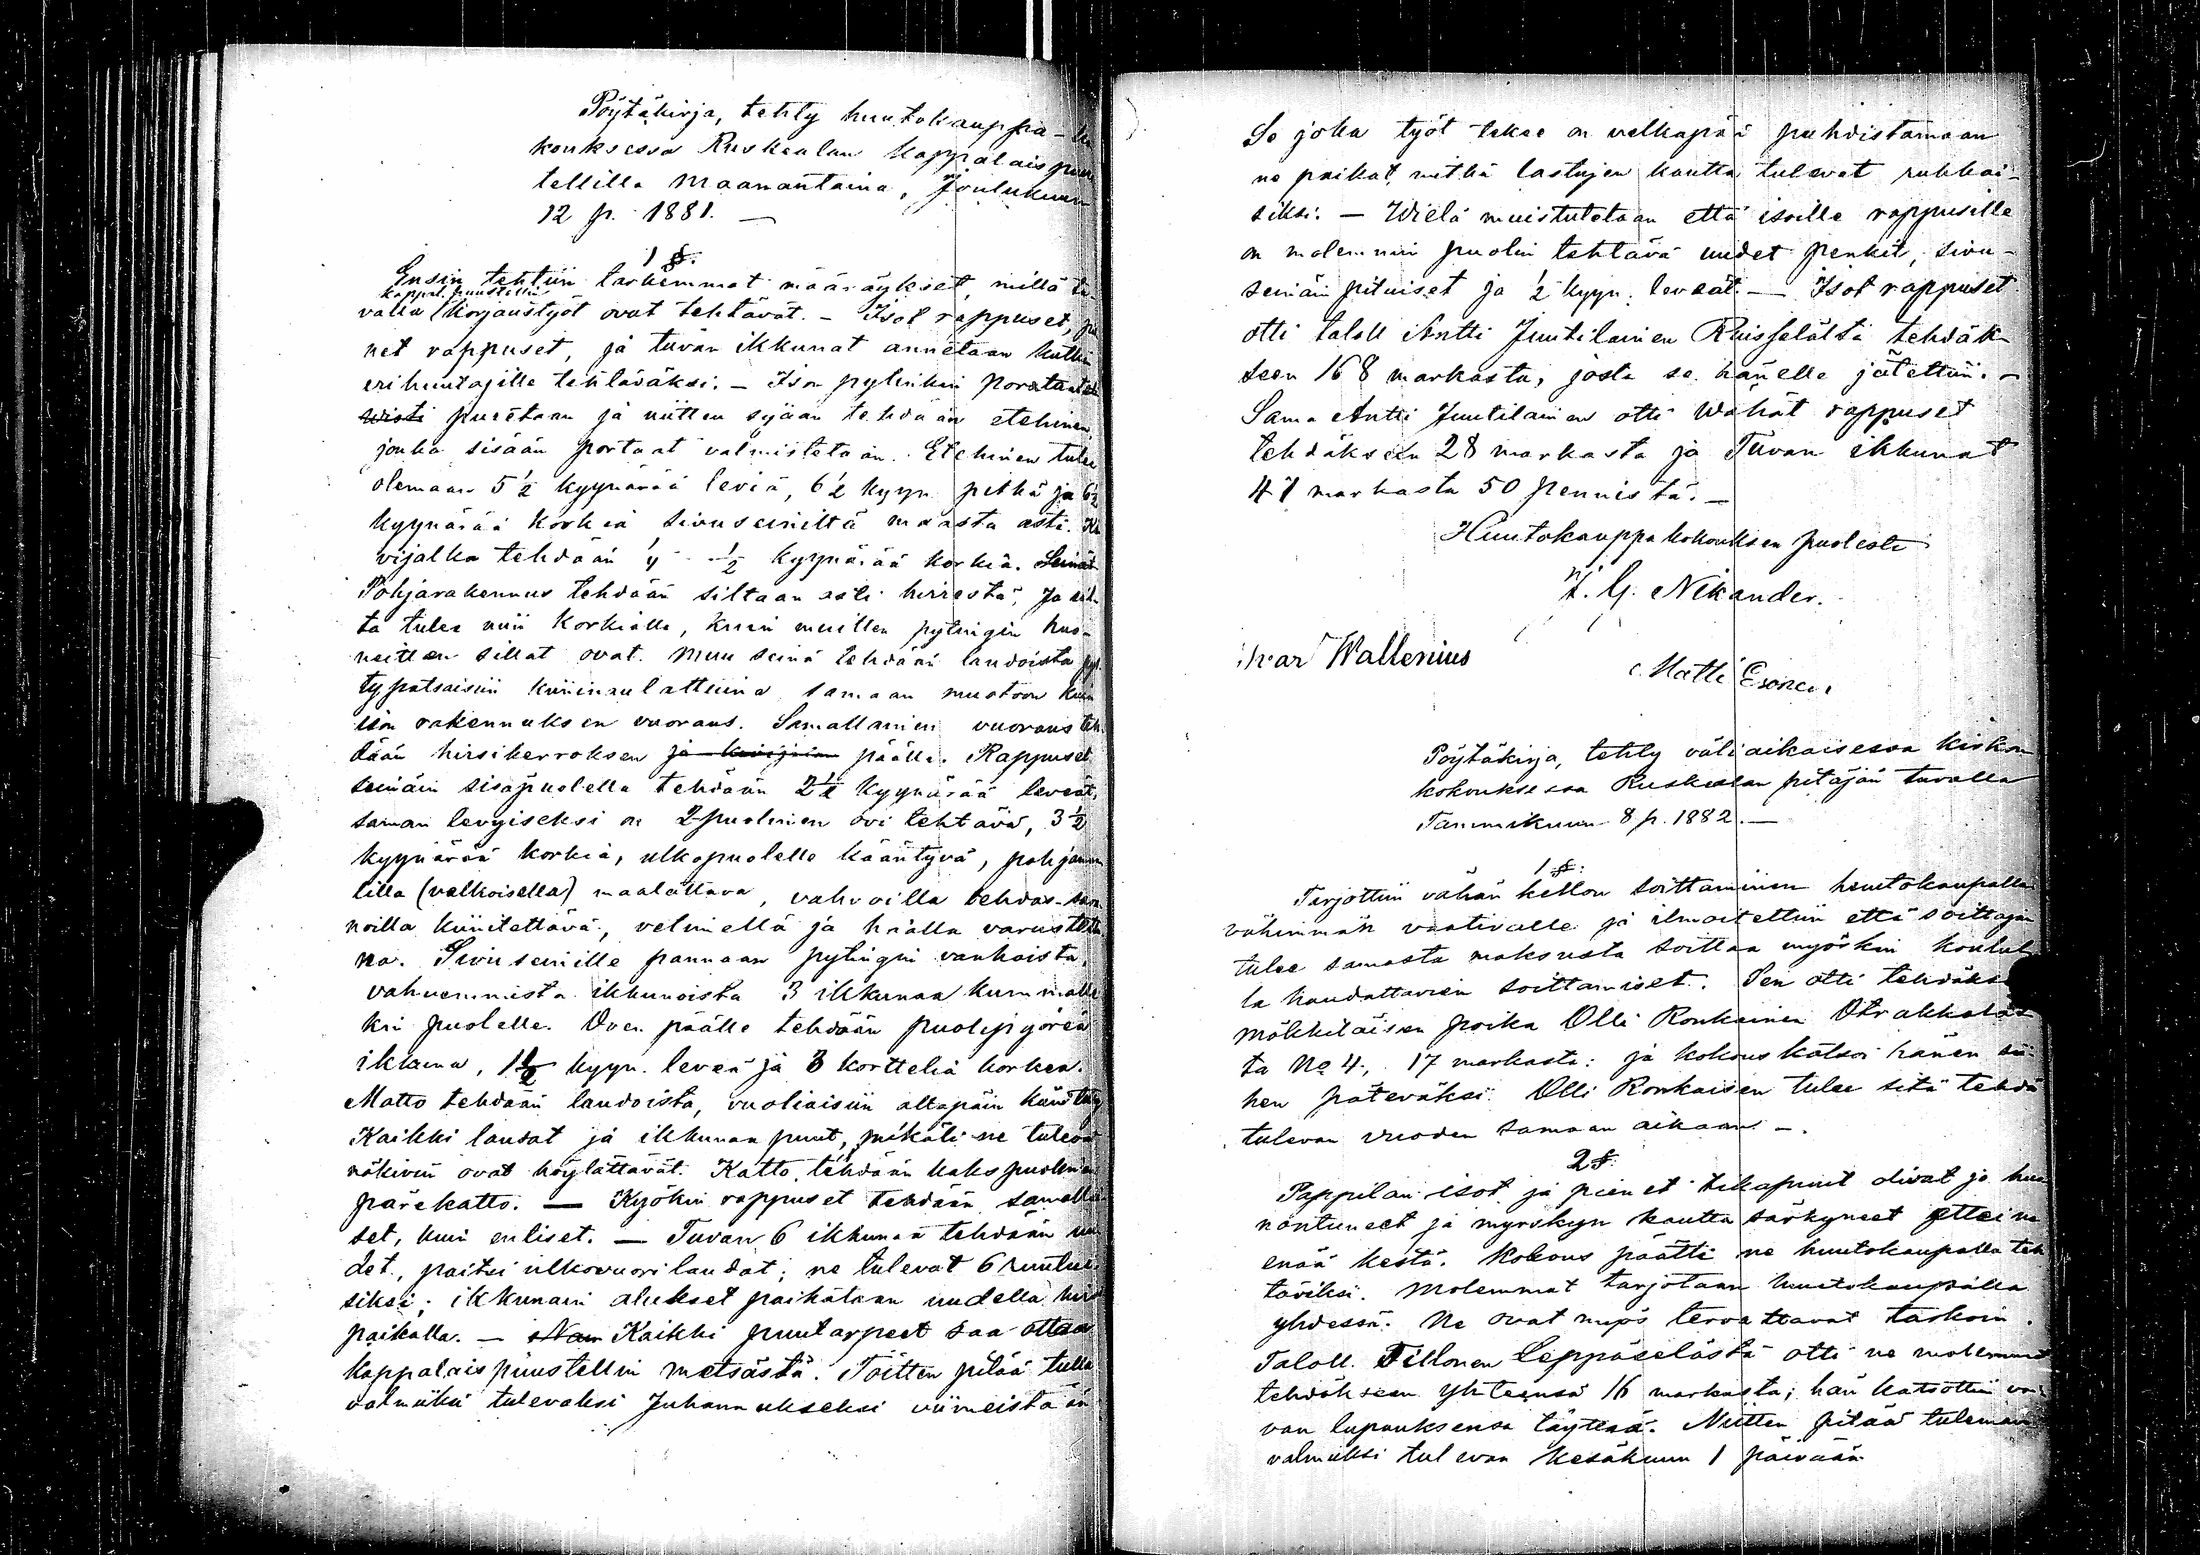 Pöytäkirja, tehty huutokauppa-
kouksessa Ruskealan kappalais puus
tellilla Maanantaina, Joulukuun
12 p. 1881. —
1 §.
Ensin tehtiin tarkemmat määräykset, millä ta-
kappal. puustellin
valla korjaustyöt ovat tehtävät. – Isot rappuset, pie
net rappuset, ja tuvan ikkunat annetaan kukin
eri huutajille tehtäväksi. – Ison pytinkin
puretaan ja niitten sijaan tehdään etehinen
jonka sisään portaat valmistetaan. Etehinen tulee
olemaan 5 1/2 kyynärää leviä, 6 1/2 kyyn pitkä ja 6 1/2
kyynärää korkia sivuseiniltä maasta asti. Ki
vijalka tehdään 1/4 - 1/2 kyynärää korkia.
Pohjarakennus tehdään siltaan asti hirrestä, ja sil-
ta tulee niin korkialle, kuin muitten pytingin huo-
neitten sillat ovat. Muu seinä tehdään laudoista pys
typatsaisiin kiininaulattuina samaan muotoon kuin
ison rakennuksen vuoraus. Samallainen vuoraus teh
dään hirsikerroksen ja kivijalan päälle. Rappuset
seinäin sisäpuolella tehdään 2 1/2 kyynärää leveät,
saman levyiseksi on 2-puolinen ovi tehtävä, 3 1/2
kyynärää korkia, ulkopuolelle kääntyvä, pohjamaa
lilla (valkoisella) maalattava, vahvoilla tehdas-sara
noilla kiinitettävä, velmellä ja häällä varustettu
na. Sivuseinille pannaan pytingin vanhoista,
vahvemmista ikkunoista 3 ikkunaa kummalle
kin puolelle. Oven päälle tehdään puolipyöreä
ikkuna, 1 1/2 kyyn. leveä ja 3 korttelia korkea.
Matto tehdään laudoista, vuoliaisiin altapäin
Kaikki laudat ja ikkunan puut, mikäli ne tulevat
näkiviin ovat höylättävät. Katto tehdään kaks puolinen
pärekatto. — Kyökin rappuset tehdään samallai
set, kuin entiset. — Tuvan 6 ikkunaa tehdään uu
det, paitsi ulkovuorilaudat; ne tulevat 6 ruutui
siksi; ikkunain alukset paikataan uudella hirs
paikalla. — Kaikki puutarpeet saa ottaa
kappalaispuustellin metsästä. Töitten pitää tulla
valmiiksi tulevaksi Juhannukseksi viimeistään
Se joka työt tekee on velkapää puhdistamaan
ne paikat, mitkä lastujen kautta tulevat rukkai-
siksi. — Wielä muistutetaan että isoille rappusille
on molemmin puolin tehtävä uudet penkit, sivu-
seinäin pituiset ja 1/2 kyyn. leveät. — Isot rappuset
otti taloll Antti Juutilainen Ruisselältä tehdäk-
seen 168 markasta, josta se hänelle jätettiin. –
Sama Antti Juutilainen otti Wähät rappuset
tehdäkseen 28 markasta ja Tuvan ikkunat
47 markasta 50 pennistä. —
Huutokauppakokouksen puolesta
J. G. Nikander.
Ivar Wallenius
Matti Eronen
Pöytäkirja, tehty väliaikaisessa kirkon
kokouksessa Ruskealan pitäjän tuvalla
Tammikuun 8 p. 1882. —
1 §.
Tarjottiin vähän kellon soittaminen huutokaupalla
vähimmän vaativalle ja ilmoitettiin että soittajan
tulee samasta maksusta soittaa myöskin koulul
la haudattavien soittamiset. Sen otti tehdäkse
mökkiläisen poika Olli Ronkainen Otrakkalas
ta No 4, 17 markasta: ja kokous katsoi hänen sii-
hen päteväksi. Olli Ronkaisen tulee sitä tehdä
tulevan vuoden samaan aikaan —.
2 §.
Pappilan isot ja pienet tikapuut olivat jo huo
nontuneet ja myrskyn kautta särkyneet ettei ne
enää kestä. Kokous päätti ne huutokaupalla teh
täviksi. Molemmat tarjotaan huutokaupalla
yhdessä. Ne ovat myös tervattavat tarkoin.
Taloll. Tillonen Leppäselästä otti ne molemmat
tehdäkseen yhteensä 16 markasta; hän katsottiin voi-
van lupauksensa täyttää. Niitten pitää tuleman
valmiiksi tulevan Kesäkuun 1 päivään